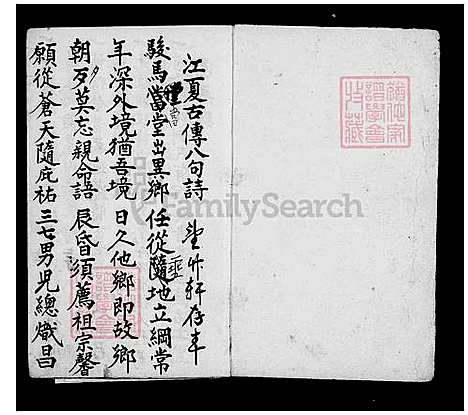 江夏古傳八句詩
駿馬當堂出異鄉 任從隨地立綱常
年深外境猶吾境 日久他鄉即故鄉
朝夕莫忘親命語 辰昏須薦祖宗馨
願從蒼天隨庇祐 三七男兒總熾昌
FamilySearch